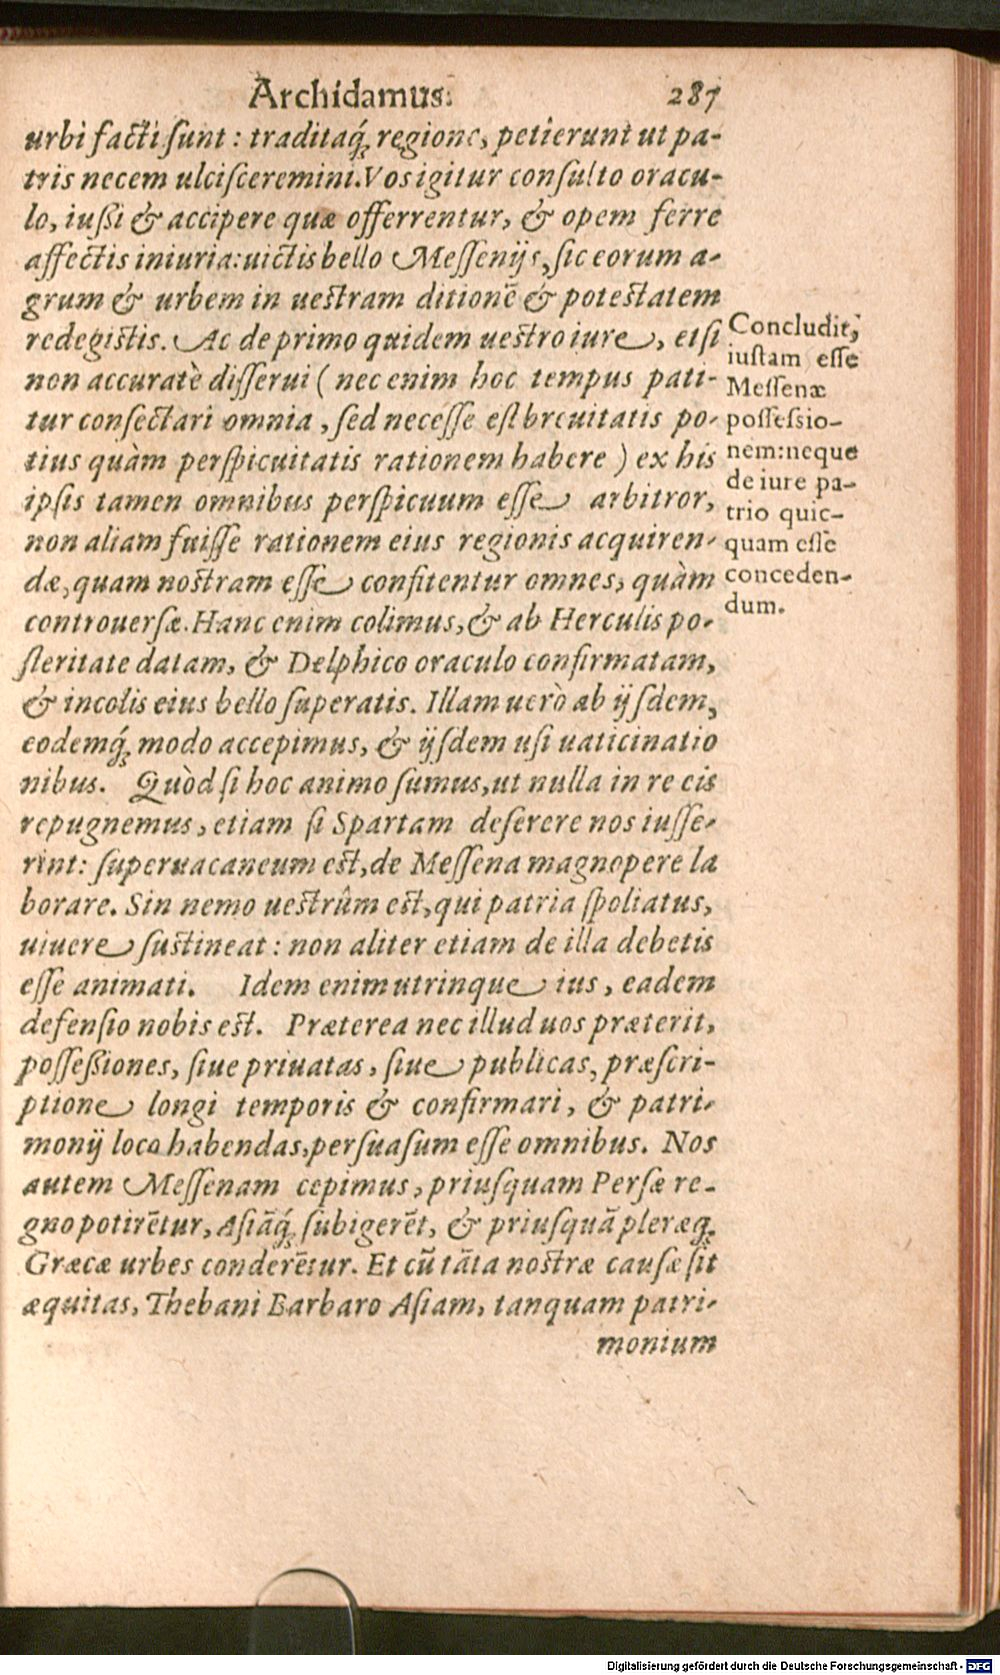 Archidamus. 287
urbi facti sunt: traditaq́; regione, petierunt ut pa-
tris necem ulcisceremini. Vos igitur consulto oracu-
lo, iußi & accipere quæ offerrentur, & opem ferre
affectis iniuria: uictis bello Messenijs, sic eorum a-
grum & urbem in uestram ditionẽ & potestatem
redegistis. Ac de primo quidem uestro iure, etsi
non accuratè disserui (nec enim hoc tempus pati-
tur consectari omnia, sed necesse est breuitatis po-
tius quàm perspicuitatis rationem habere) ex his
ipsis tamen omnibus perspicuum esse arbitror,
non aliam fuisse rationem eius regionis acquiren-
dæ, quam nostram esse confitentur omnes, quàm
controuersæ. Hanc enim colimus, & ab Herculis po-
steritate datam, & Delphico oraculo confirmatam,
& incolis eius bello superatis. Illam uerò ab ijsdem,
eodemq́; modo accepimus, & ijsdem usi uaticinatio
nibus. Quòd si hoc animo sumus, ut nulla in re eis
repugnemus, etiam si Spartam deserere nos iusse-
rint: superuacaneum est, de Messena magnopere la
borare. Sin nemo uestrûm est, qui patria spoliatus,
uiuere sustineat: non aliter etiam de illa debetis
esse animati. Idem enim utrinque ius, eadem
defensio nobis est. Præterea nec illud uos præterit,
posseßiones, siue priuatas, siue publicas, præscri-
ptione longi temporis & confirmari, & patri-
monij loco habendas, persuasum esse omnibus. Nos
autem Messenam cepimus, priusquam Persæ re-
gno potirẽtur, Asiãq́; subigerẽt, & priusquã pleræq;
Græcæ urbes conderẽtur. Et cũ tãta nostræ causæ sit
æquitas, Thebani Barbaro Asiam, tanquam patri-
monium
Concludit,
iustam esse
Messenæ
possessio-
nem: neque
de iure pa-
trio quic-
quam esse
conceden-
dum.
Digitalisierung gefördert durch die Deutsche Forschungsgemeinschaft - DFG